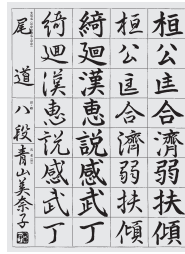 桓公匡合濟弱扶傾
桓公匡合濟弱扶傾
綺廻漢恵説感武丁
綺廻漢恵説感武丁
尾道 八段 青山美奈子